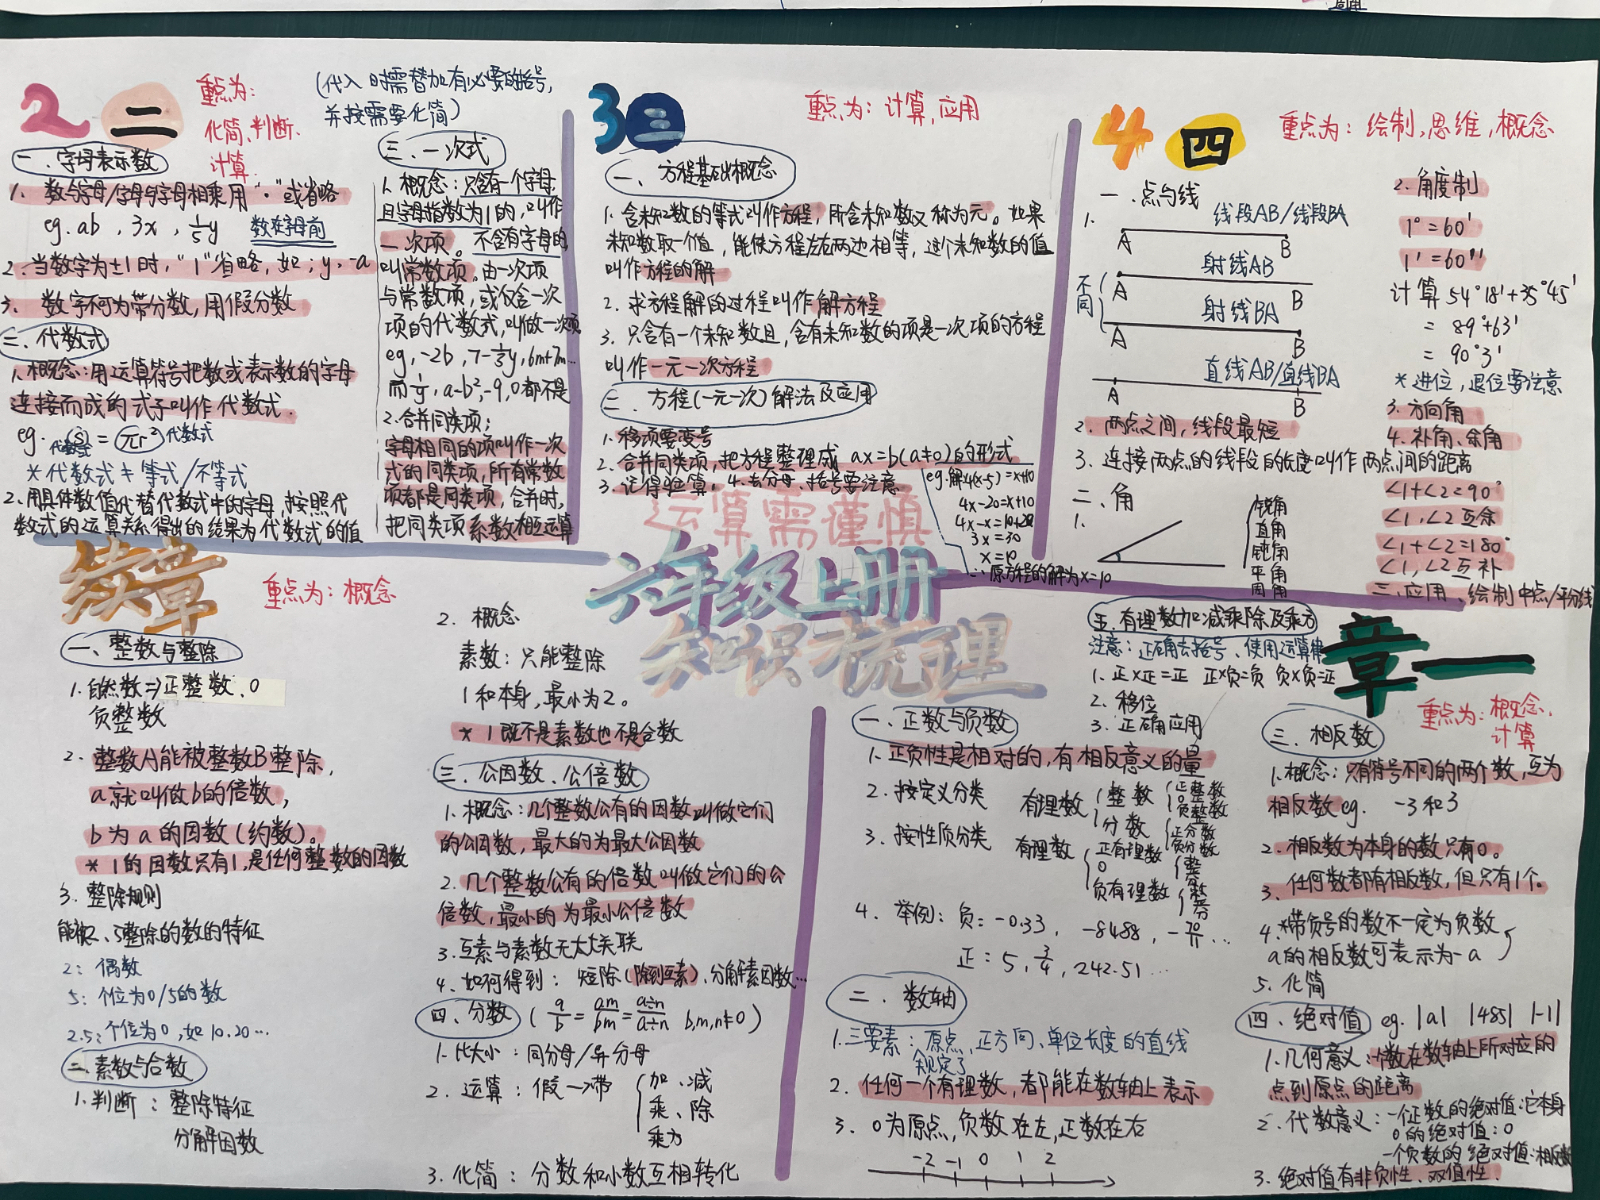 2 二
重点为:
化简、判断、
计算.
(代入时需替加有必要的括号,
并按需要化简)
一、字母表示数
1. 数与字母/字母与字母相乘用“·”或省略
eg. ab , 3x , 1/5y 数在字母前
2. 当数字为±1时,“1”省略,如:y、-a
3. 数字不可为带分数,用假分数
二、代数式
1. 概念:用运算符号把数或表示数的字母
连接而成的式子叫作代数式.
eg. S = πr² 代数式
代数式
*代数式≠等式/不等式
2. 用具体数值代替代数式中的字母,按照代
数式的运算关系得出的结果为代数式的值
三、一次式
1. 概念:只含有一个字母,
且字母指数为1的,叫作
一次项。不含有字母的
叫常数项。由一次项
与常数项,或仅含一次
项的代数式,叫做一次式
eg, -2b , 7-1/3y, 6m+7m...
而1/y, a-b², -9, 0都不是
2. 合并同类项:
字母相同的项叫作一次
式的同类项,所有常数
项都是同类项,合并时,
把同类项系数相运算
3 三
重点为:计算,应用
一、方程基础概念
1. 含未知数的等式叫作方程,所含未知数又称为元。如果
未知数取一个值,能使方程左右两边相等,这个未知数的值
叫作方程的解
2. 求方程解的过程叫作解方程
3. 只含有一个未知数且,含有未知数的项是一次项的方程
叫作一元一次方程
二、方程(一元一次)解法及应用
1. 移项要变号
2. 合并同类项,把方程整理成 ax=b(a≠0)的形式
3. 记得验算! 4. 去分母、括号要注意
eg.解4(x-5)=x+10
4x-20=x+10
4x-x=10+20
3x=30
x=10
∴原方程的解为x=10
运算需谨慎
4 四
重点为:绘制,思维,概念
一、点与线
1.
线段AB/线段BA
A B
不同
射线AB
A B
射线BA
A B
直线AB/直线BA
A B
2. 两点之间,线段最短
3. 连接两点的线段的长度叫作两点间的距离
二、角
1.
锐角
直角
钝角
平角
周角
2. 角度制
1°=60′
1′=60″
计算54°18′+35°45′
= 89°+63′
= 90°3′
*进位,退位要注意
3. 方向角
4. 补角、余角
∠1+∠2=90°
∠1,∠2互余
∠1+∠2=180°
∠1,∠2互补
三、应用、绘制中点/平分线
六年级上册
知识梳理
续章
重点为:概念
一、整数与整除
1. 自然数⇒正整数、0
负整数
2. 整数A能被整数B整除,
a就叫做b的倍数,
b为a的因数(约数)。
* 1的因数只有1,是任何整数的因数
3. 整除规则
能被2、5整除的数的特征
2:偶数
5:个位为0/5的数
2.5:个位为0,如10.20...
二、素数与合数
1. 判断:整除特征
分解因数
2. 概念
素数:只能整除
1和本身,最小为2。
* 1既不是素数也不是合数
三、公因数、公倍数
1. 概念:几个整数公有的因数叫做它们
的公因数,最大的为最大公因数
2. 几个整数公有的倍数叫做它们的公
倍数,最小的为最小公倍数
3. 互素与素数无太大关联
4. 如何得到:短除(除到互素)、分解素因数...
四、分数 ( a/b = am/bm = a÷n/a÷n b,m,n≠0 )
1. 比大小:同分母/异分母
2. 运算:假→带
加、减
乘、除
乘方
3. 化简:分数和小数互相转化
章一
重点为:概念、
计算
五、有理数加减乘除及乘方
注意:正确去括号、使用运算律
1. 正×正=正 正×负=负 负×负=正
2. 移位
3. 正确应用
一、正数与负数
1. 正负性是相对的,有相反意义的量
2. 按定义分类 有理数
整数
正整数
0
负整数
分数
正分数
负分数
3. 按性质分类 有理数
正有理数
整
分
0
负有理数
整
分
4. 举例:负:-0.33, -8488, ...
正:5, 3/4, 242.51...
二、数轴
1. 三要素:原点、正方向、单位长度的直线
规定了
2. 任何一个有理数,都能在数轴上表示
3. 0为原点,负数在左,正数在右
-2 -1 0 1 2
三、相反数
1. 概念:只有符号不同的两个数,互为
相反数 eg. -3和3
2. 相反数为本身的数只有0。
3. 任何数都有相反数,但只有1个。
4. *带负号的数不一定为负数
a的相反数可表示为-a
5. 化简
四、绝对值 eg. |a| |485| |-1|
1. 几何意义:一个数在数轴上所对应的
点到原点的距离
2. 代数意义:一个正数的绝对值:它本身
0的绝对值:0
一个负数的绝对值:相反数
3. 绝对值有非负性、双值性.